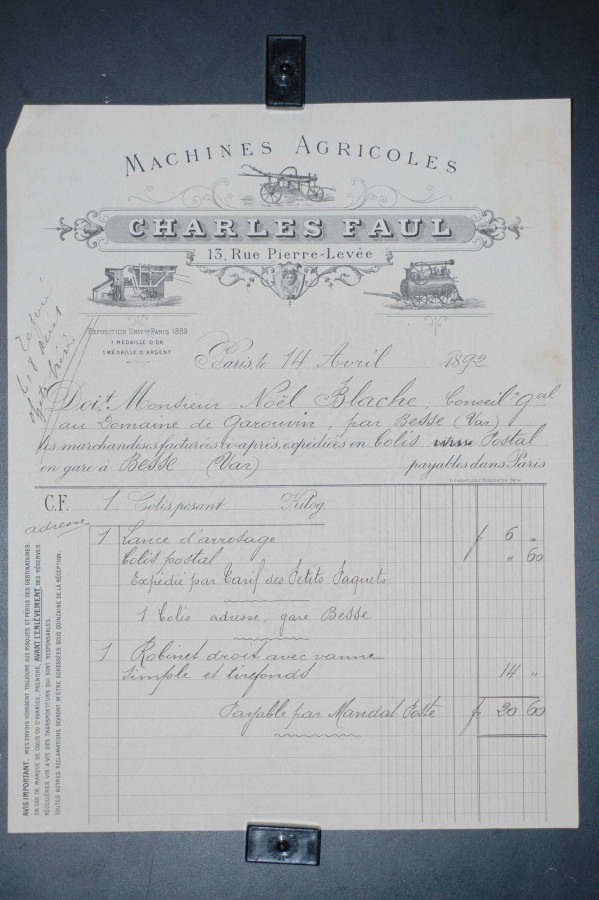 MACHINES AGRICOLES
CHARLES FAUL
13, Rue Pierre-Levée
EXPOSITION UNIVlle PARIS 1889
1 MÉDAILLE D'OR
1 MÉDAILLE D'ARGENT
Paris, le 14 Avril 1892
Doit Monsieur Noël Blache, Conseiller gal
au Domaine de Garouvin, par Besse (Var)
les marchandises facturées ci-après, expédiées en Colis Postal
en gare à Besse (Var) payables dans Paris
C.F. 1 Colis pesant Kilog.
adresse
1 Lance d'arrosage f 6 "
Colis postal " 60
Expédié par Tarif des Petits Paquets
1 Colis adresse, gare Besse
1 Robinet droit avec vanne
simple et tirefonds 14 "
Payable par Mandat Poste f 20 60
AVIS IMPORTANT. MES ENVOIS VOYAGENT TOUJOURS AUX RISQUES ET PÉRILS DES DESTINATAIRES
EN CAS DE MANQUE DE COLIS OU D'AVARIES, PRENDRE, AVANT L'ENLÈVEMENT, DES RÉSERVES
RÉGULIÈRES VIS-A-VIS DES TRANSPORTEURS QUI SONT RESPONSABLES.
TOUTES AUTRES RÉCLAMATIONS DEVRONT M'ÊTRE ADRESSÉES SOUS QUINZAINE DE LA RÉCEPTION.